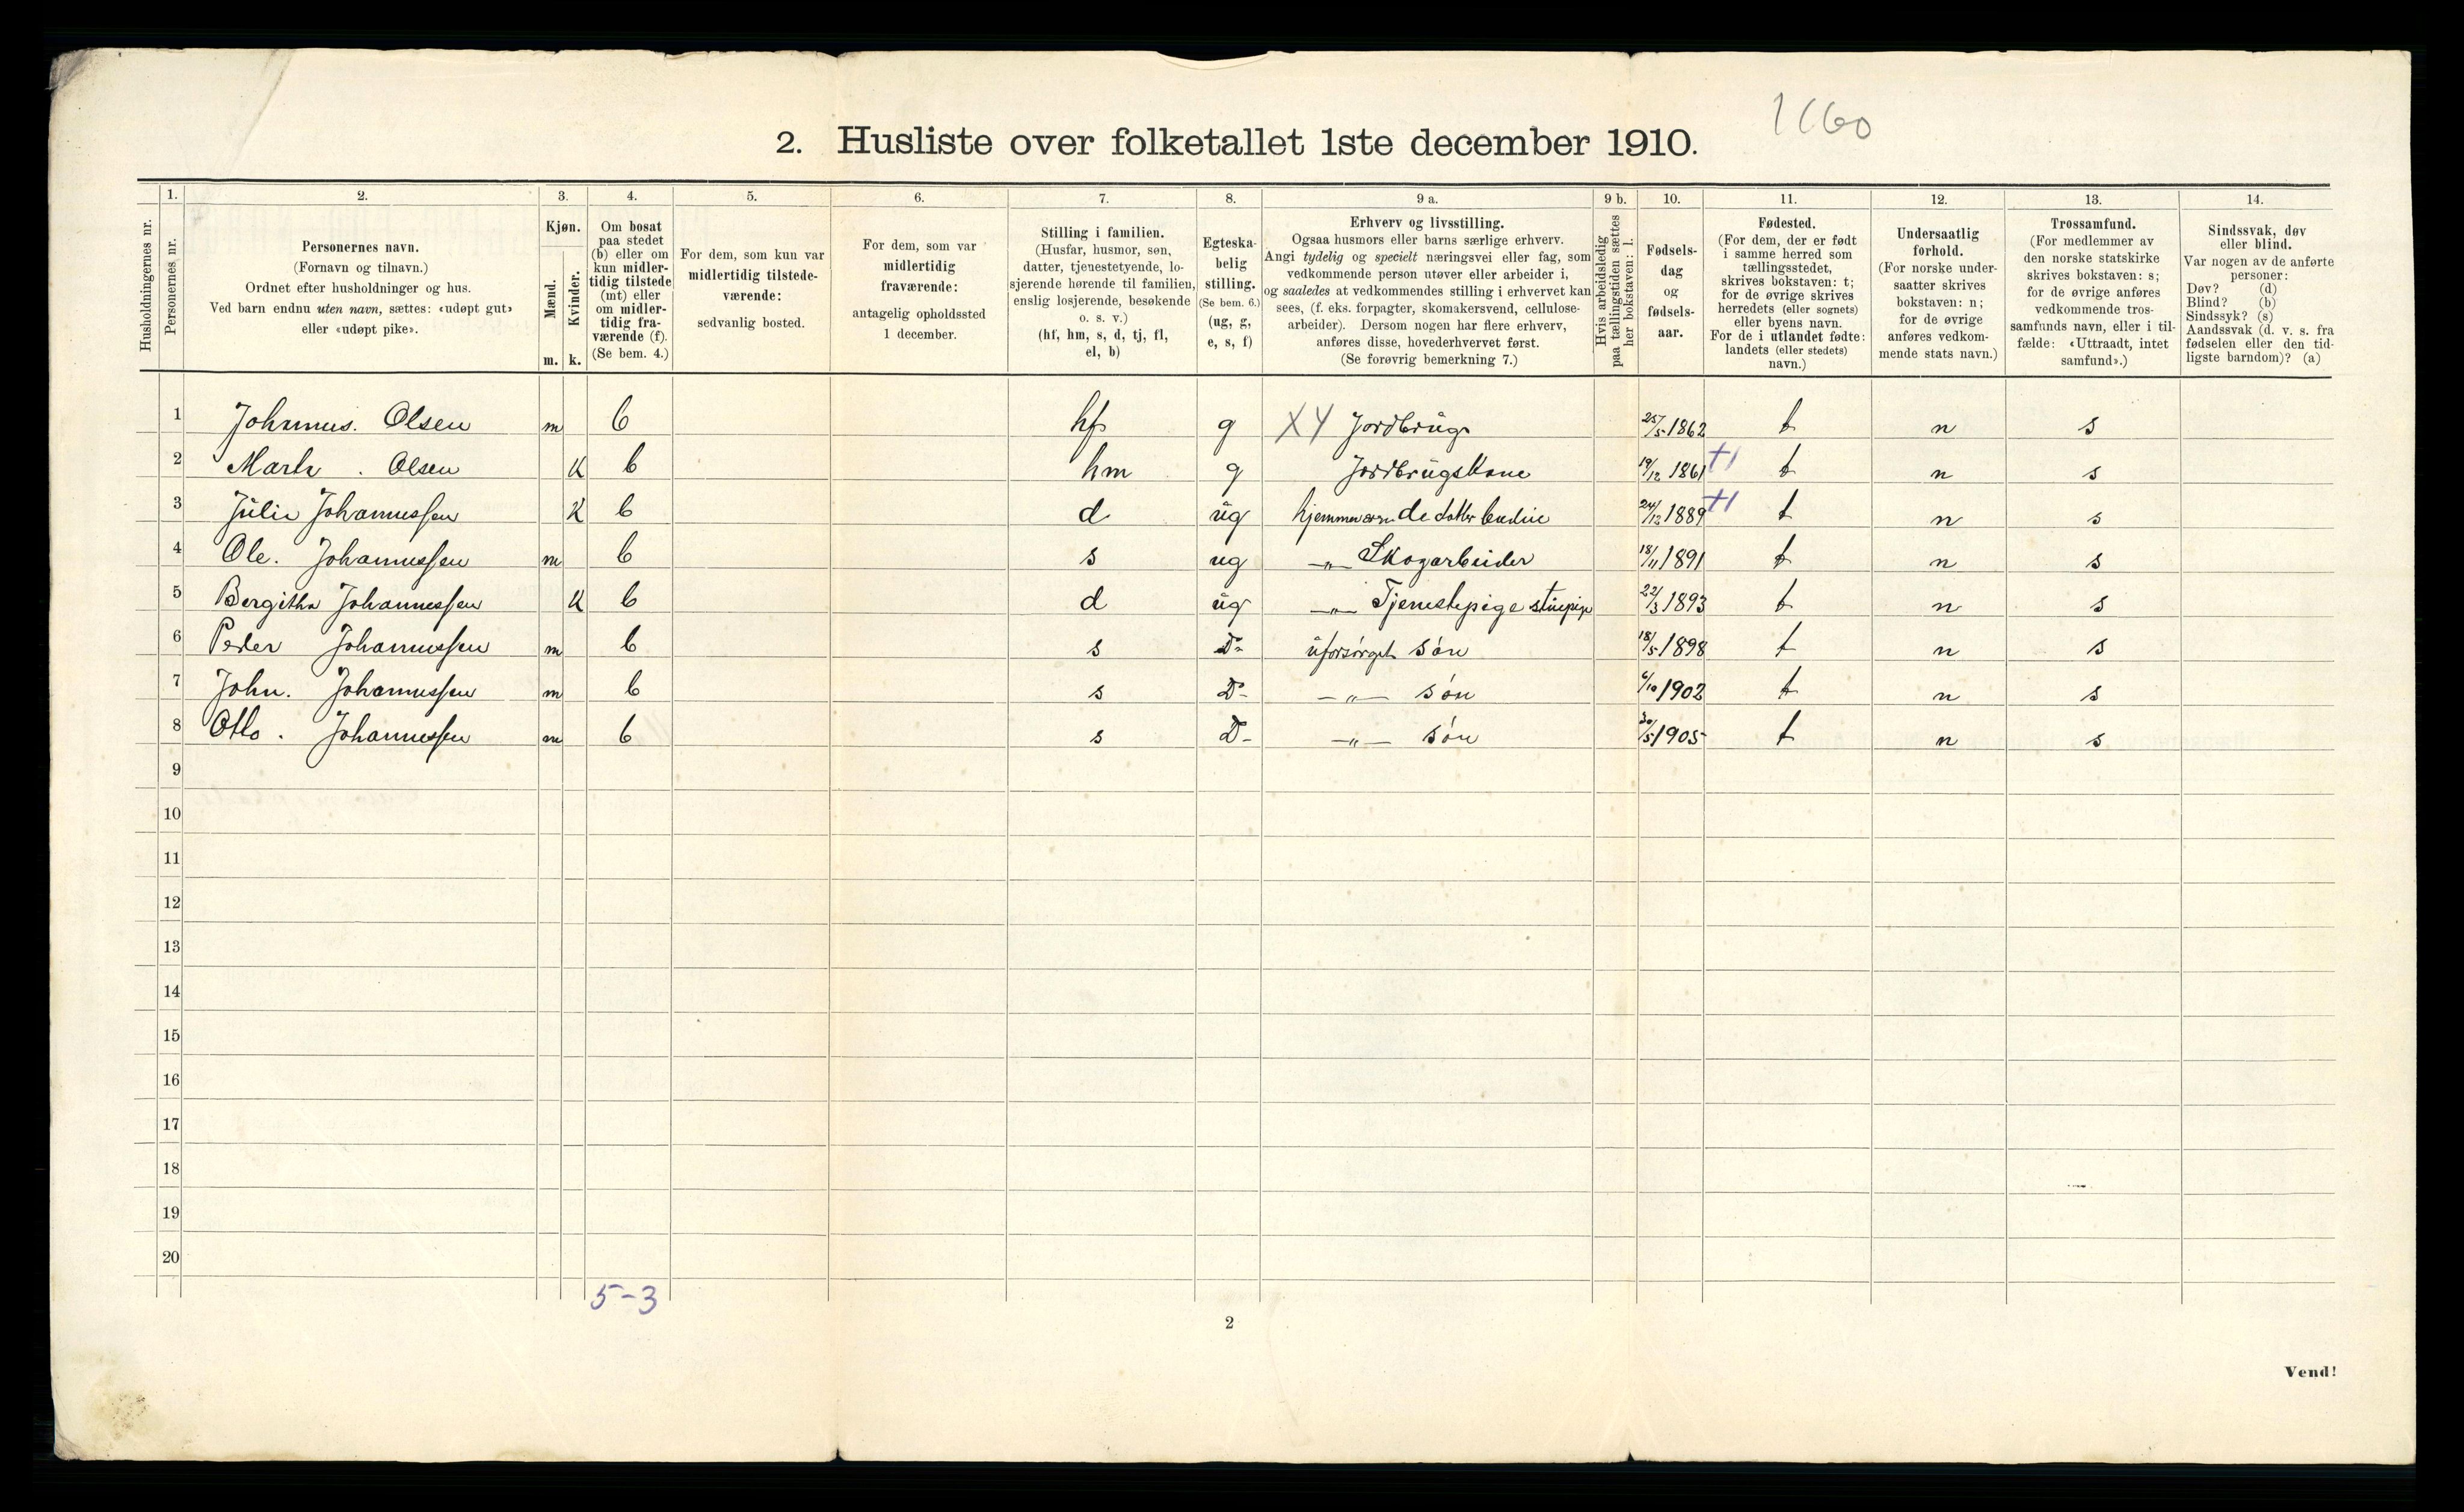 1660
2. Husliste over folketallet 1ste december 1910.
Husholdningernes nr.
1.
Personernes nr.
2.
Personernes navn.
(Fornavn og tilnavn.)
Ordnet efter husholdninger og hus.
Ved barn endnu uten navn, sættes: «udøpt gut»
eller «udøpt pike».
3.
Kjøn.
Mænd.
Kvinder.
m. k.
4.
Om bosat
paa stedet
(b) eller om
kun midler-
tidig tilstede
(mt) eller
om midler-
tidig fra-
værende (f).
(Se bem. 4.)
5.
For dem, som kun var
midlertidig tilstede-
værende:
sedvanlig bosted.
6.
For dem, som var
midlertidig
fraværende:
antagelig opholdssted
1 december.
7.
Stilling i familien.
(Husfar, husmor, søn,
datter, tjenestetyende, lo-
sjerende hørende til familien,
enslig losjerende, besøkende
o. s. v.)
(hf, hm, s, d, tj, fl,
el, b)
8.
Egteska-
belig
stilling.
(Se bem. 6.)
(ug, g,
e, s, f)
9 a.
Erhverv og livsstilling.
Ogsaa husmors eller barns særlige erhverv.
Angi tydelig og specielt næringsvei eller fag, som
vedkommende person utøver eller arbeider i,
og saaledes at vedkommendes stilling i erhvervet kan
sees, (f. eks. forpagter, skomakersvend, cellulose-
arbeider). Dersom nogen har flere erhverv,
anføres disse, hovederhvervet først.
(Se forøvrig bemerkning 7.)
9 b.
Hvis arbeidsledig
paa tællingstiden sættes
her bokstaven: l.
10.
Fødsels-
dag
og
fødsels-
aar.
11.
Fødested.
(For dem, der er født
i samme herred som
tællingsstedet,
skrives bokstaven: t;
for de øvrige skrives
herredets (eller sognets)
eller byens navn.
For de i utlandet fødte:
landets (eller stedets)
navn.)
12.
Undersaatlig
forhold.
(For norske under-
saatter skrives
bokstaven: n;
for de øvrige
anføres vedkom-
mende stats navn.)
13.
Trossamfund.
(For medlemmer av
den norske statskirke
skrives bokstaven: s;
for de øvrige anføres
vedkommende tros-
samfunds navn, eller i til-
fælde: «Uttraadt, intet
samfund».)
14.
Sindssvak, døv
eller blind.
Var nogen av de anførte
personer:
Døv? (d)
Blind? (b)
Sindssyk? (s)
Aandssvak (d. v. s. fra
fødselen eller den tid-
ligste barndom)? (a)
1 Johannus. Olsen m b hf g X4 Jordbrug 25/5 1862 t n s
2 Marte . Olsen K b hm g Jordbrugskone 19/12 1861 t n s
3 Julie Johannessen K b d ug 24/12 1889 t n s
4 Ole. Johannessen m b s ug -„- Skogarbeider 18/11 1891 t n s
5 Bergitha Johannessen K b d ug -„- Tjenestepige stuepige 22/3 1893 t n s
6 Peder Johannessen m b s Do uforsørget søn 18/5 1898 t n s
7 John. Johannessen m b s Do -„- søn 6/10 1902 t n s
8 Otto. Johannessen m b s Do -„- søn 30/5 1905 t n s
9
10
11
12
13
14
15
16
17
18
19
20
5-3
2
Vend!